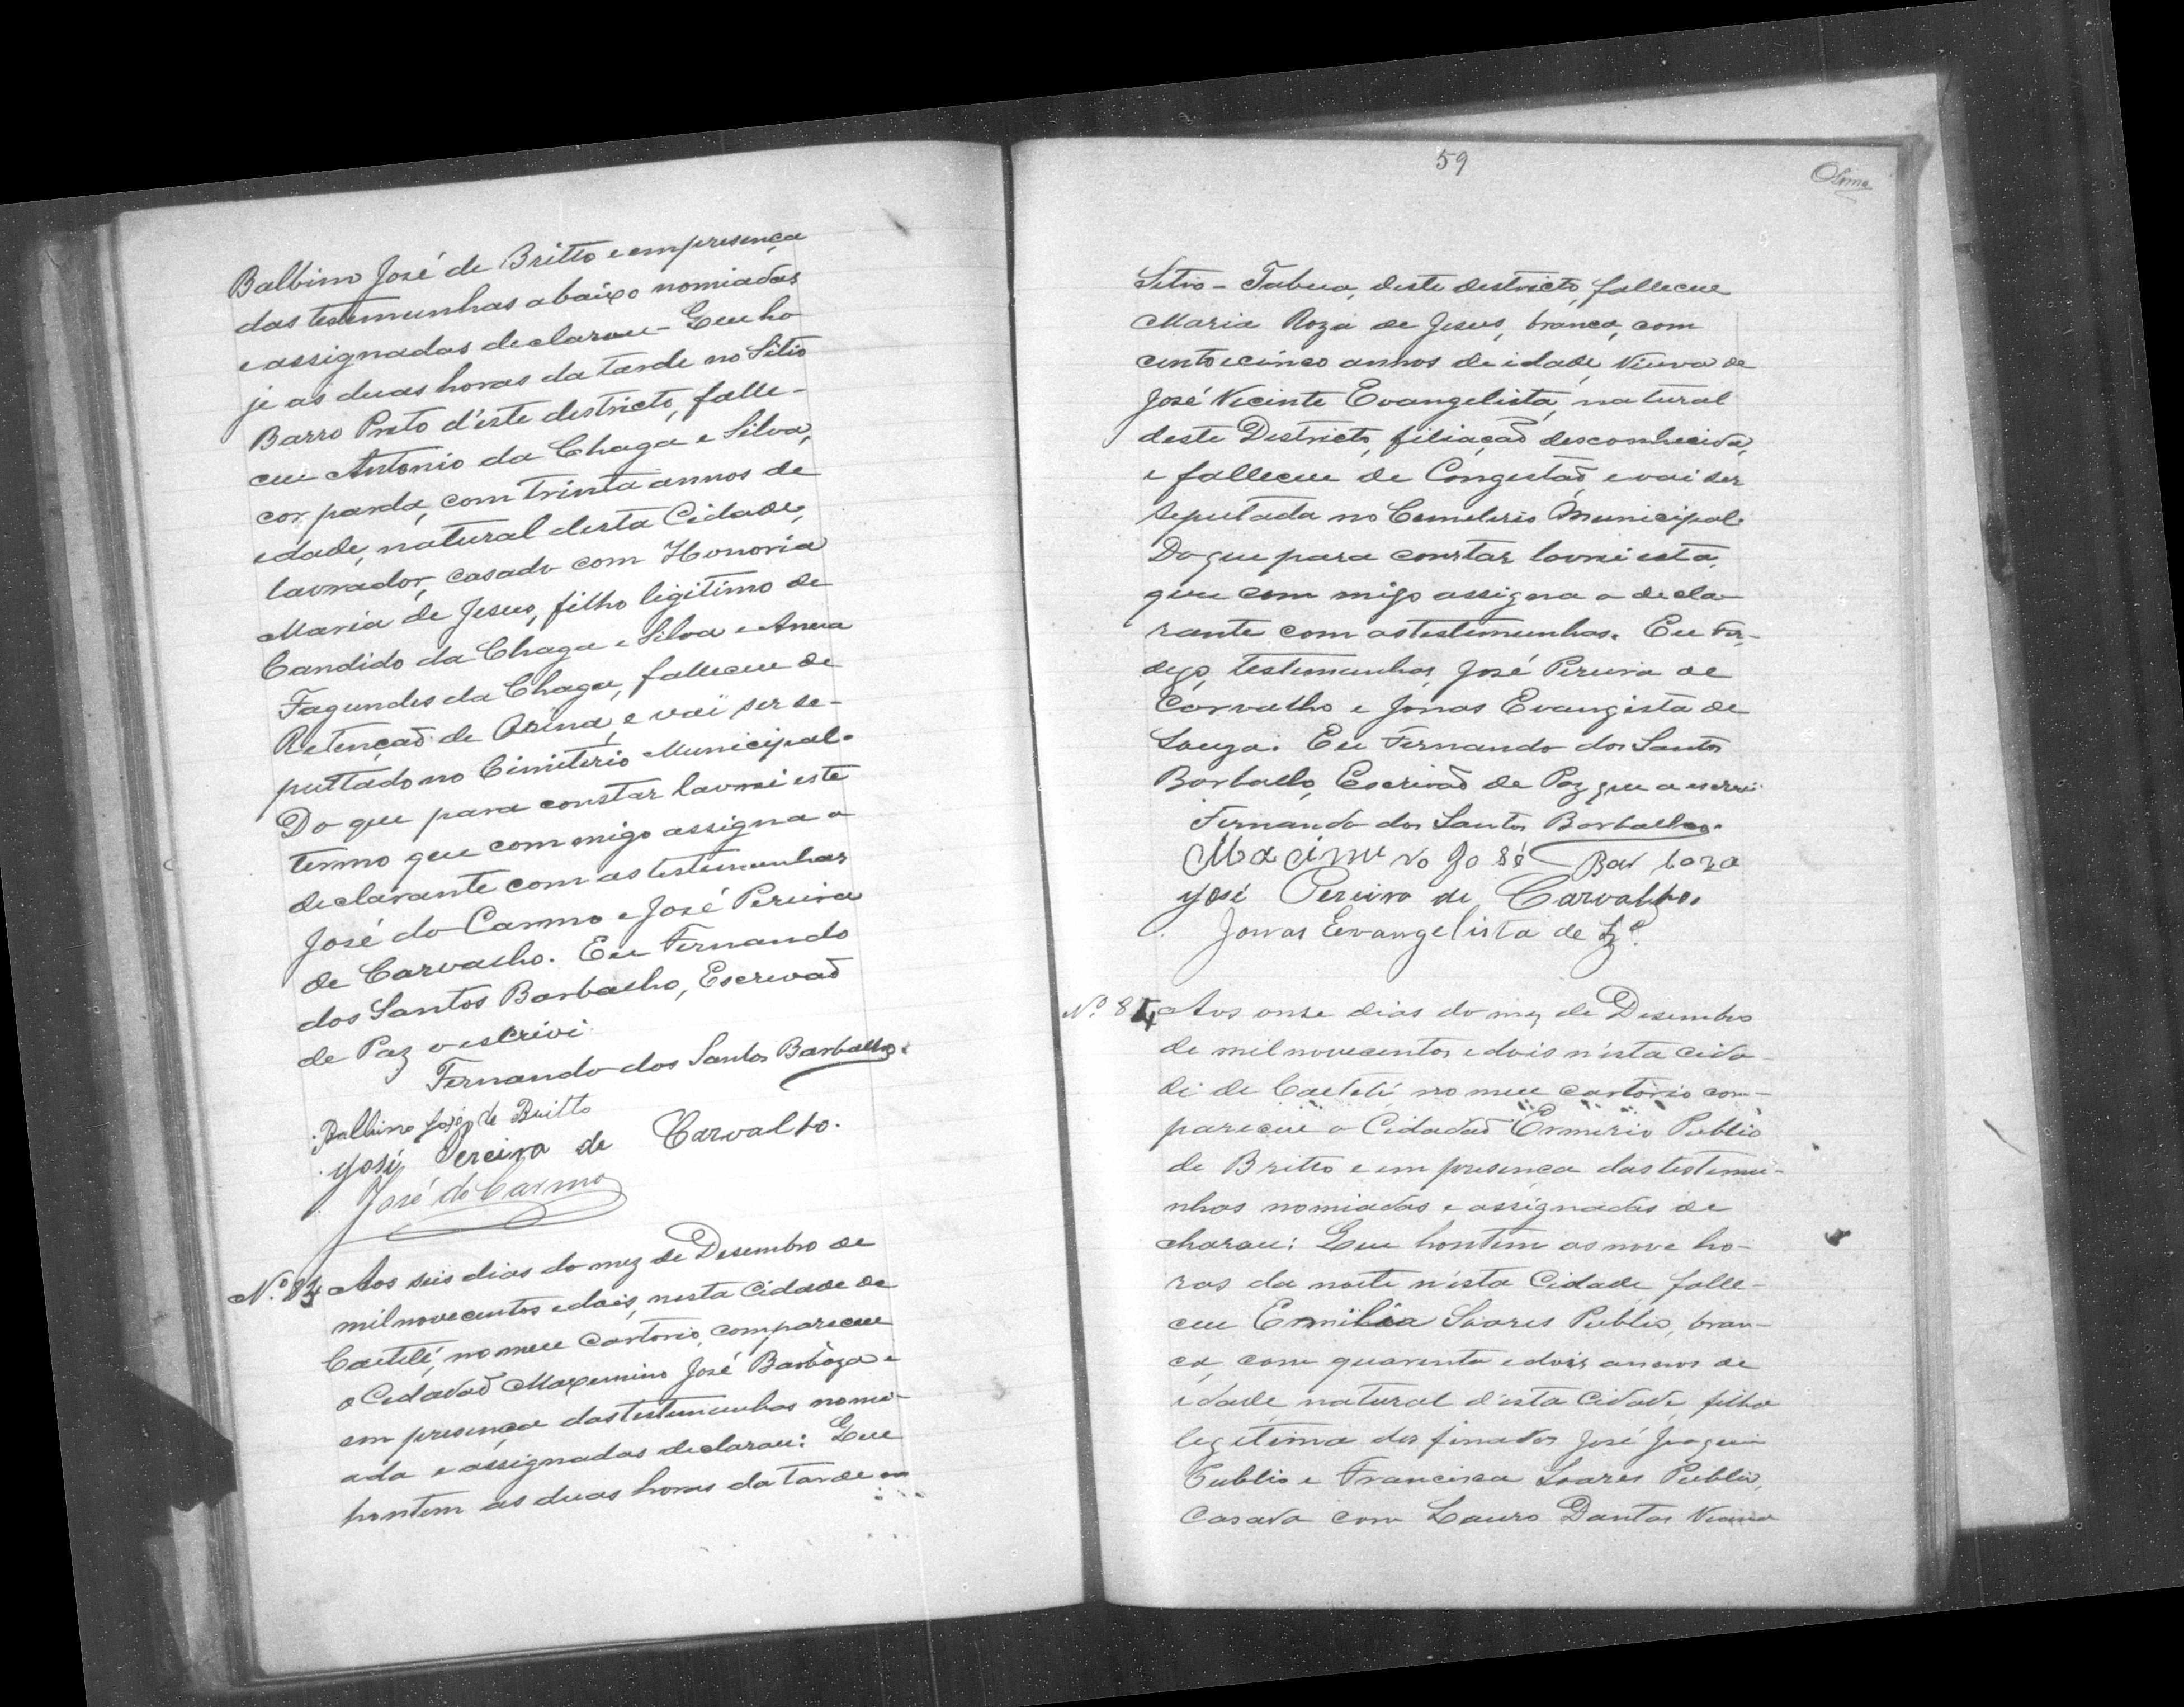 Balbino José de Britto e em presença
das testemunhas abaixo nomiadas
e assignadas declarou - Que ho
je as duas horas da tarde no Sitio
Barro Preto d'este destricto, falle-
ceu Antonio da Chaga e Silva,
cor parda, com trinta annos de
edade, natural desta Cidade,
lavrador, casado com Honoria
Maria de Jesus, filho legitimo de
Candido da Chaga e Silva e Anna
Fagundes da Chaga, falleceu de
Retenção de Orina, e vai ser se-
pultado no Cimiterio Municipal.
Do que para constar lavrei este
termo que com migo assigna o
declarante com as testemunhas
José do Carmo e José Pereira
de Carvalho. Eu Fernando
dos Santos Barbalho, Escrivaõ
de Paz o escrivi
Fernando dos Santos Barbalho.
Balbino José de Britto
José Pereira de Carvalho.
José do Carmo
N.º 83 Aos seis dias do mez de Desembro de
mil novecentos e dois, nesta Cidade de
Caetité, no meu Cartorio, compareceu
o Cidadaõ Maxemino José Barboza e
em presença das testemunhas nomi-
ada e assignadas declarou: Que
hontem as duas horas da tarde no
59
Sitio - Tabua, deste destricto, falleceu
Maria Roza de Jesus, branca, com
cento e cinco annos de idade, Viuva de
José Vicente Evangelista, natural
deste Districto, filiaçaõ desconhecida,
e falleceu de Congestaõ, e vai ser
sepultada no Cemeterio Municipal.
Do que para constar lavrei esta,
que com migo assigna o decla-
rante com as testemunhas. Eu
digo, testemunhas, José Pereira de
Carvalho e Jonas Evangista de
Souza. Eu Fernando dos Santos
Barbalho, Escrivaõ de Paz que a escrevi
Fernando dos Santos Barbalho.
José Barboza
José Pereira de Carvalho.
Jonas Evangelista de Sz.ª
N.º 84 Aos onse dias do mez de Desembro
de mil novecentos e dois n'esta cida-
de de Caetité no meu cartorio com-
pareceu o Cidadaõ Ermirio Publio
de Britto e em presença das testemu-
nhas nomiadas e assignadas de
charou: Que hontem as nove ho-
ras da noite n'esta Cidade falle-
ceu Emilia Soares Publio, bran-
ca, com quarenta e dois annos de
idade natural d'esta Cidade, filha
legitima dos finados José Joaquim
Publio e Francisca Soares Publio,
Casada com Lauro Dantas